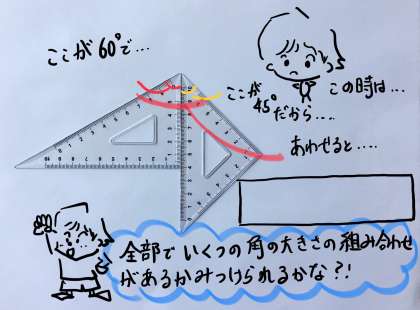 ここが60°で...
この時は...
ここが
45°だから....
あわせると....
全部でいくつの角の大きさの組み合わせ
があるかみつけられるかな?!